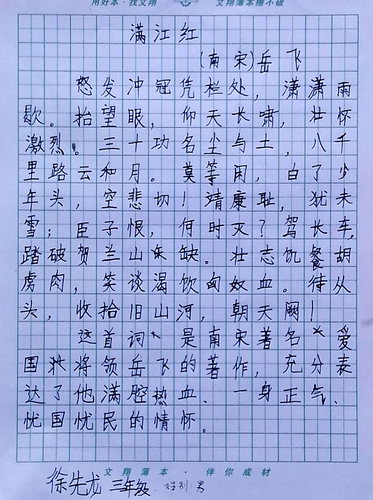 用好本·找文翔 文翔簿本擦不破
满江红
(南宋)岳飞
怒发冲冠凭栏处,潇潇雨
歇。抬望眼,仰天长啸,壮怀
激烈。三十功名尘与土,八千
里路云和月。莫等闲,白了少
年头,空悲切!靖康耻,犹未
雪;臣子恨,何时灭?驾长车,
踏破贺兰山缺。壮志饥餐胡
虏肉,笑谈渴饮匈奴血。待从
头,收拾旧山河,朝天阙!
这首词是南宋著名爱
国将领岳飞的著作,充分表
达了他满腔热血、一身正气、
忧国忧民的情怀。
文翔簿本·伴你成材
徐先龙 三年级 性别:男